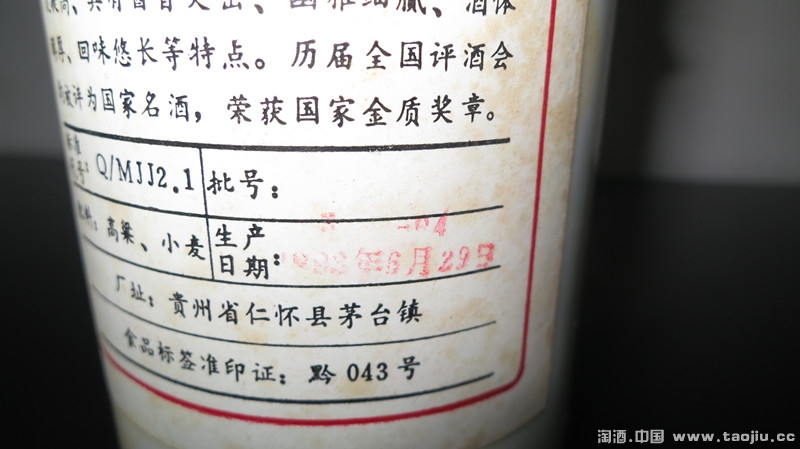 具有酱香突出、幽雅细腻、酒体
、回味悠长等特点。历届全国评酒会
被评为国家名酒，荣获国家金质奖章。
标准
号：Q/MJJ2.1
批号：
料：高粱、小麦
生产
日期：
-04
年6月29日
厂址：贵州省仁怀县茅台镇
食品标签准印证：黔 043 号
淘酒.中国 www.taojiu.cc